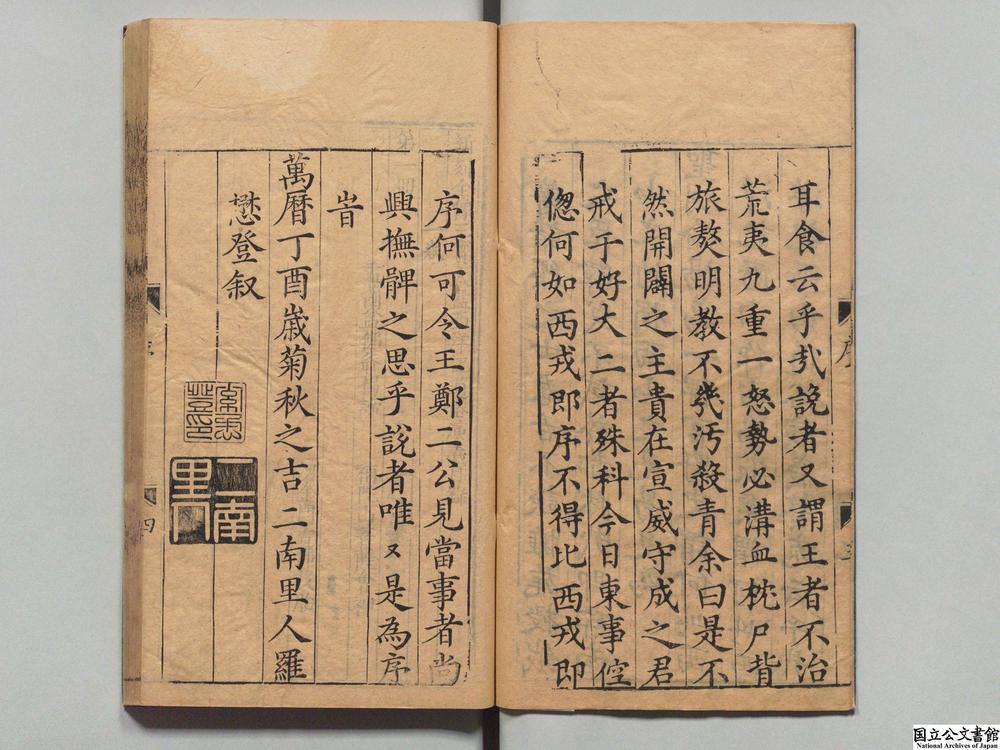 耳食云乎㢤說者又謂王者不治
荒夷九重一怒勢必溝血枕尸背
旅獒明教不幾汚殺青余曰是不
然開闢之主貴在宣威守成之君
戒于好大二者殊科今日東事倥
偬何如西戎即序不得比西戎即
序
三
序何可令王鄭二公見當事者尚
興撫髀之思乎說者唯又是為序
旹
萬曆丁酉歲菊秋之吉二南里人羅
懋登叙
羅懋
登印
二南
里人
四
国立公文書館
National Archives of Japan